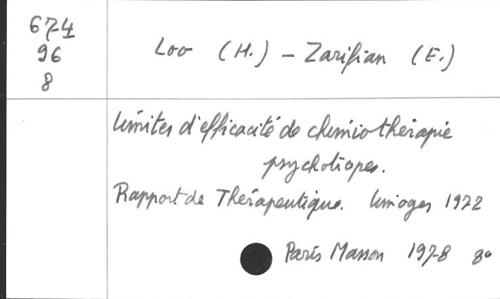 674
96
8
Loo (H.) – Zarifian (E.)
limites d'efficacité de chimiothérapie
psychotropes.
Rapport de Thérapeutique. limoges 1977
Paris Masson 1978 8°